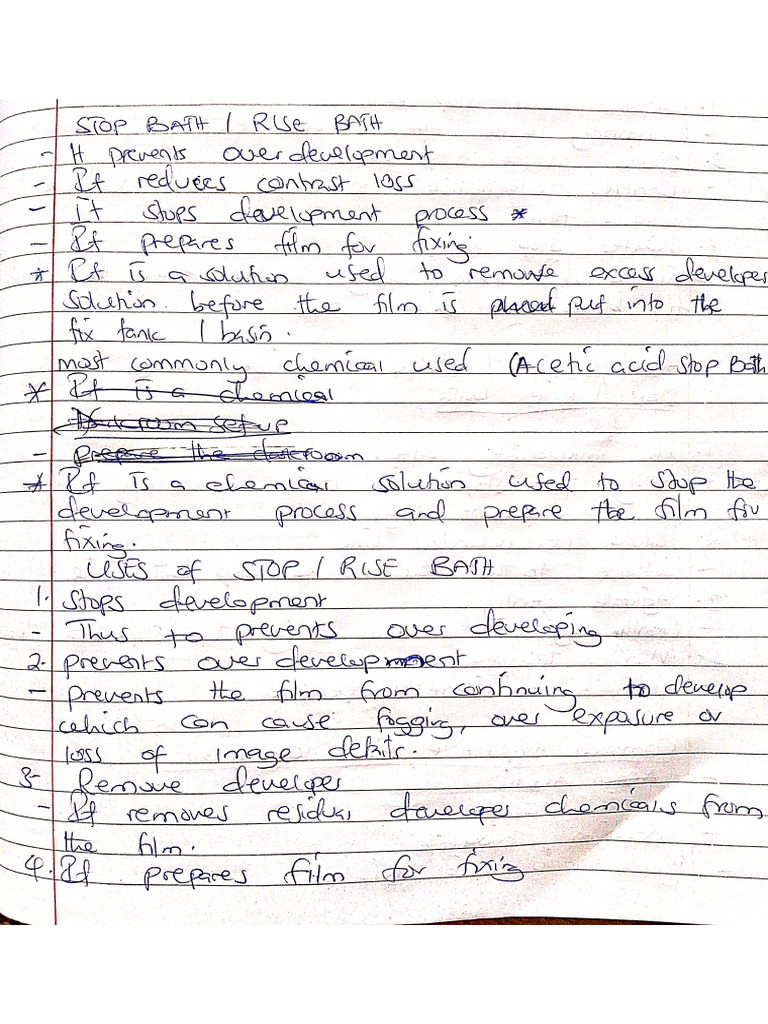 STOP BATH / RISE BATH
- It prevents over development
- It reduces contrast loss
- It stops development process *
- It prepares film for fixing
* It is a solution used to remove excess developer
solution before the film is placed put into the
fix tank / basin.
most commonly chemical used (Acetic acid stop Bath
* It is a chemical
Darkroom setup
- prepare the darkroom
* It is a chemical solution used to stop the
development process and prepare the film for
fixing.
USES of STOP / RISE BATH
1. Stops development
- Thus to prevents over developing
2. prevents over development
- prevents the film from continuing to develop
which can cause fogging, over exposure or
loss of image details.
3- Remove developer
- It removes residual developer chemicals from
the film.
4. It prepares film for fixing